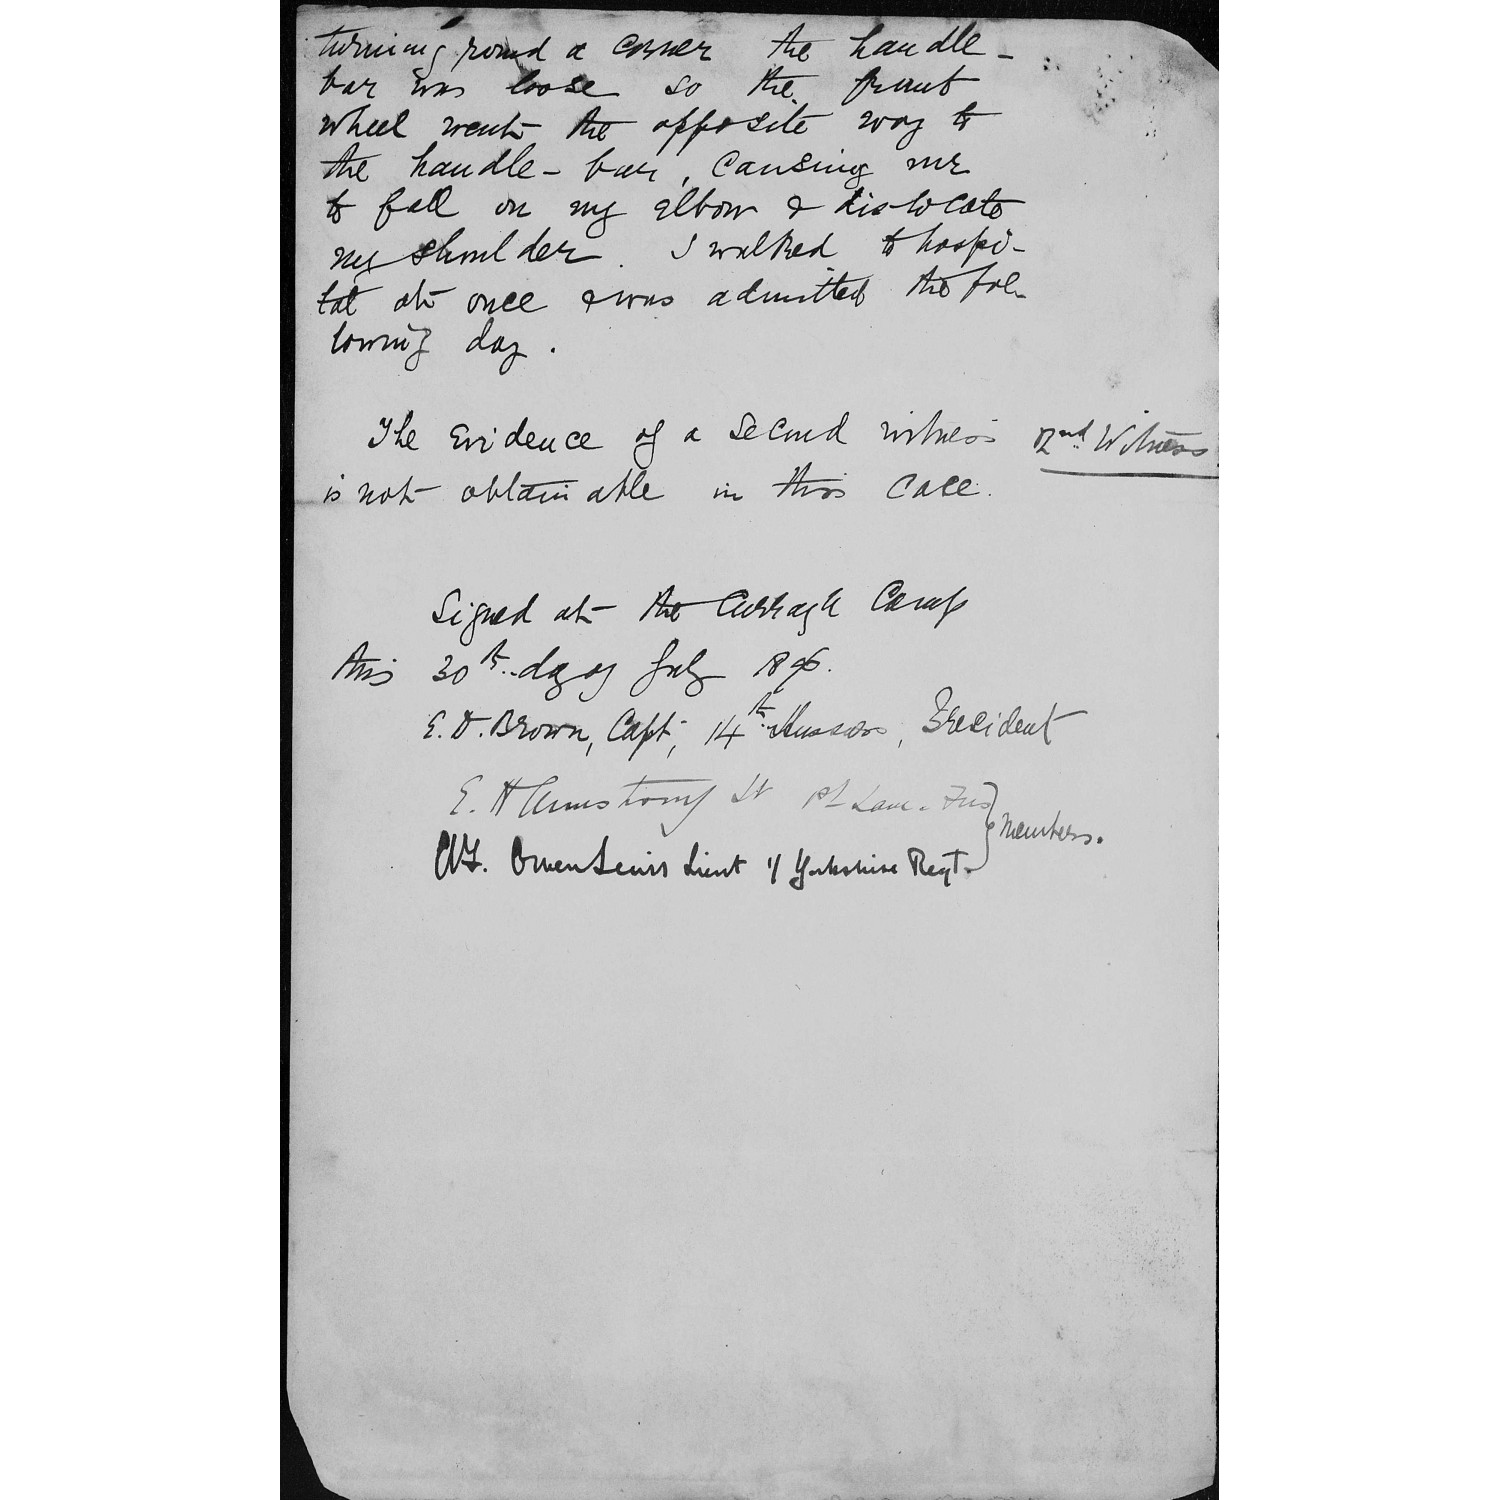 turning round a corner the handle-
bar was loose so the front
wheel went the opposite way to
the handle-bar, causing me
to fall on my elbow & dislocate
my shoulder. I walked to hospi-
tal at once & was admitted the fol-
lowing day.
The Evidence of a second witness
2nd Witness
is not obtainable in this case.
Signed at the Curragh Camp
this 30th day of July 1896.
E. D. Brown, Capt, 14th Hussars, President
E. H Armstrong Lt 1st Lanc. Fus
Members.
Owen Lewis Lieut 1/ Yorkshire Regt.